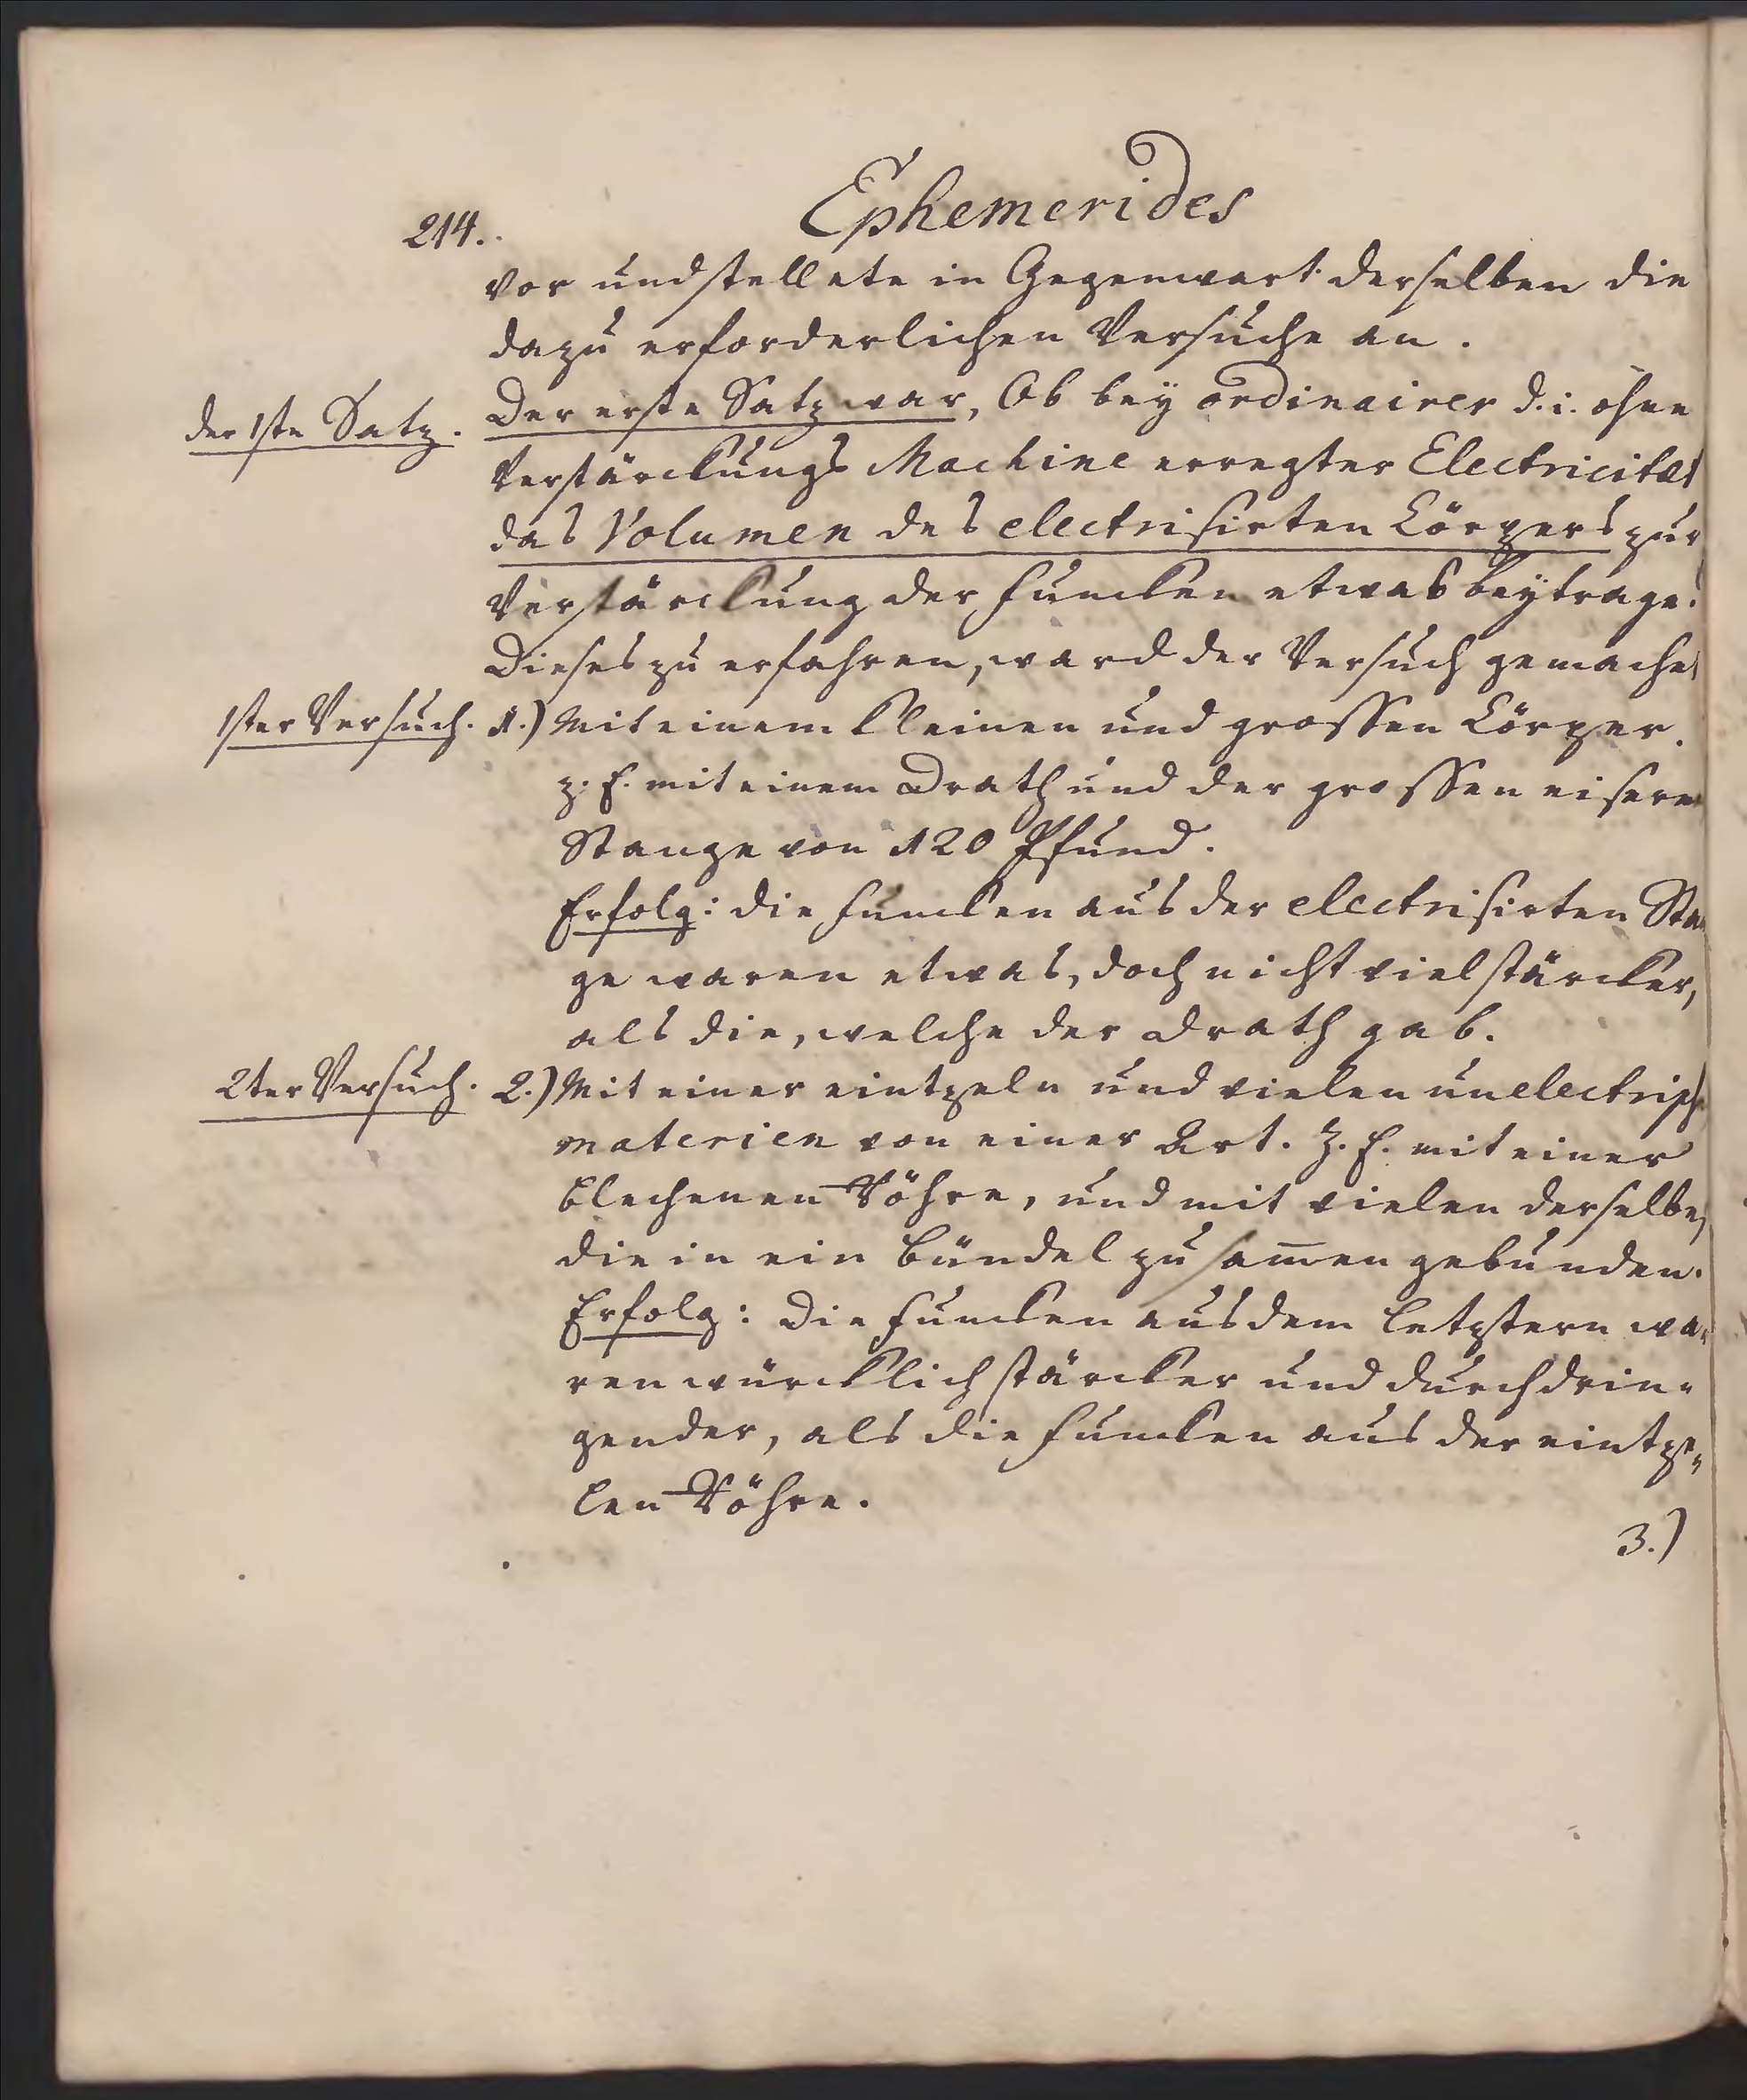 Ephemerides
214.
vor und stellete in Gegenwart derselben die
dazu erforderlichen Versuche an.
der 1ste Satz.
Der erste Satz war, Ob bey ordinairer d. i. ohne
Verstärckungs Machine erregter Electricitæt
das Volumen des electrisirten Cörpers zur
Verstärckung der Funcken etwas beytrage?
Dieses zu erfahren, ward der Versuch gemachet
1ster Versuch.
1.) Mit einem kleinen und grossen Cörper.
z. E. mit einem Drath und der grossen eisern
Stange von 120 Pfund.
Erfolg: die Funcken aus der electrisirten Stan
ge waren etwas, doch nicht viel stärcker,
als die, welche der Drath gab.
2ter Versuch.
2.) Mit einer eintzeln und vielen unelectrisch
materien von einer Art. Z. E. mit einer
blechenen Röhre, und mit vielen derselben,
die in ein Bündel zusam̅en gebunden.
Erfolg: Die Funcken aus dem letztern wa-
ren würcklich stärcker und durchdrin-
gender, als die Funcken aus der eintze-
len Röhre.
3.)